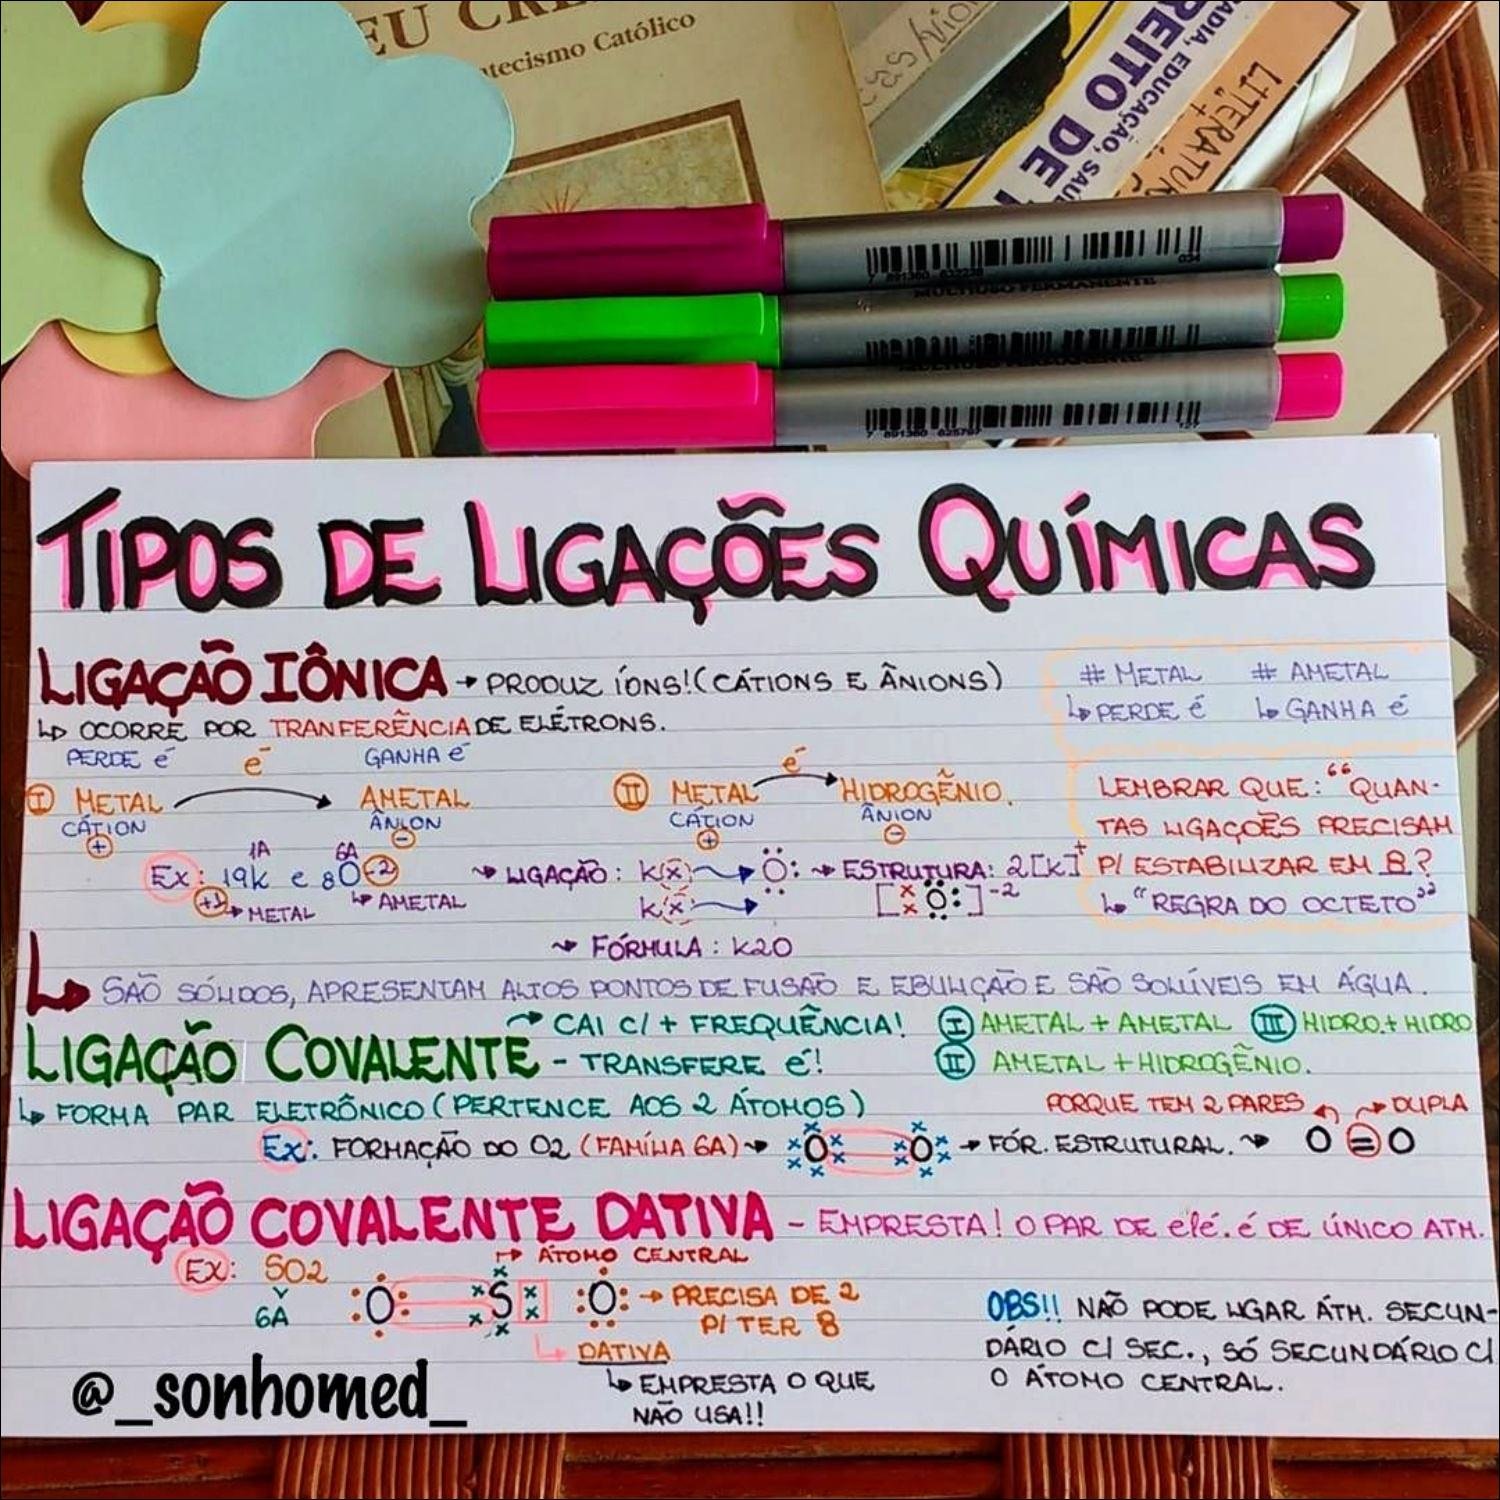 EU CRE
atecismo Católico
LITERATUR
ADIA, EDUCAÇÃO, SAÚ
REITO DE
7 891360 632238
034
MULTIUSO PERMANENTE
MULTIUSO PERMANENTE
7 891360 625797
TIPOS DE LIGAÇÕES QUÍMICAS
LIGAÇÃO IÔNICA → PRODUZ ÍONS! (CÁTIONS E ÂNIONS)
↳ OCORRE POR TRANFERÊNCIA DE ELÉTRONS.
# METAL # AMETAL
↳ PERDE é ↳ GANHA é
PERDE é é GANHA é
I METAL → AMETAL
CÁTION ÂNION
+ -
é
II METAL → HIDROGÊNIO.
CÁTION ÂNION
+ -
LEMBRAR QUE: “QUAN-
TAS LIGAÇÕES PRECISAM
P/ ESTABILIZAR EM 8?
↳ “REGRA DO OCTETO”
1A 6A
Ex: 19K e 8O -2 ⤳ LIGAÇÃO: K(x) → O: ⤳ ESTRUTURA: 2[K]+
+1 → METAL ↳ AMETAL K(x) → [xx O:]-2
⤳ FÓRMULA: K2O
↳ SÃO SÓLIDOS, APRESENTAM ALTOS PONTOS DE FUSÃO E EBULIÇÃO E SÃO SOLÚVEIS EM ÁGUA.
→ CAI C/ + FREQUÊNCIA! I AMETAL + AMETAL III HIDRO. + HIDRO
LIGAÇÃO COVALENTE - TRANSFERE é! II AMETAL + HIDROGÊNIO.
↳ FORMA PAR ELETRÔNICO (PERTENCE AOS 2 ÁTOMOS)
PORQUE TEM 2 PARES → DUPLA
Ex: FORMAÇÃO DO O2 (FAMÍLIA 6A) → O O → FÓR. ESTRUTURAL. ⤳ O = O
LIGAÇÃO COVALENTE DATIVA - EMPRESTA! O PAR DE elé. é DE ÚNICO ATM.
Ex: SO2
6A
→ ÁTOMO CENTRAL
:O S xx :O: → PRECISA DE 2
P/ TER 8
↳ DATIVA
↳ EMPRESTA O QUE
NÃO USA!!
OBS!! NÃO PODE LIGAR ÁTM. SECUN-
DÁRIO C/ SEC., SÓ SECUNDÁRIO C/
O ÁTOMO CENTRAL.
@_sonhomed_